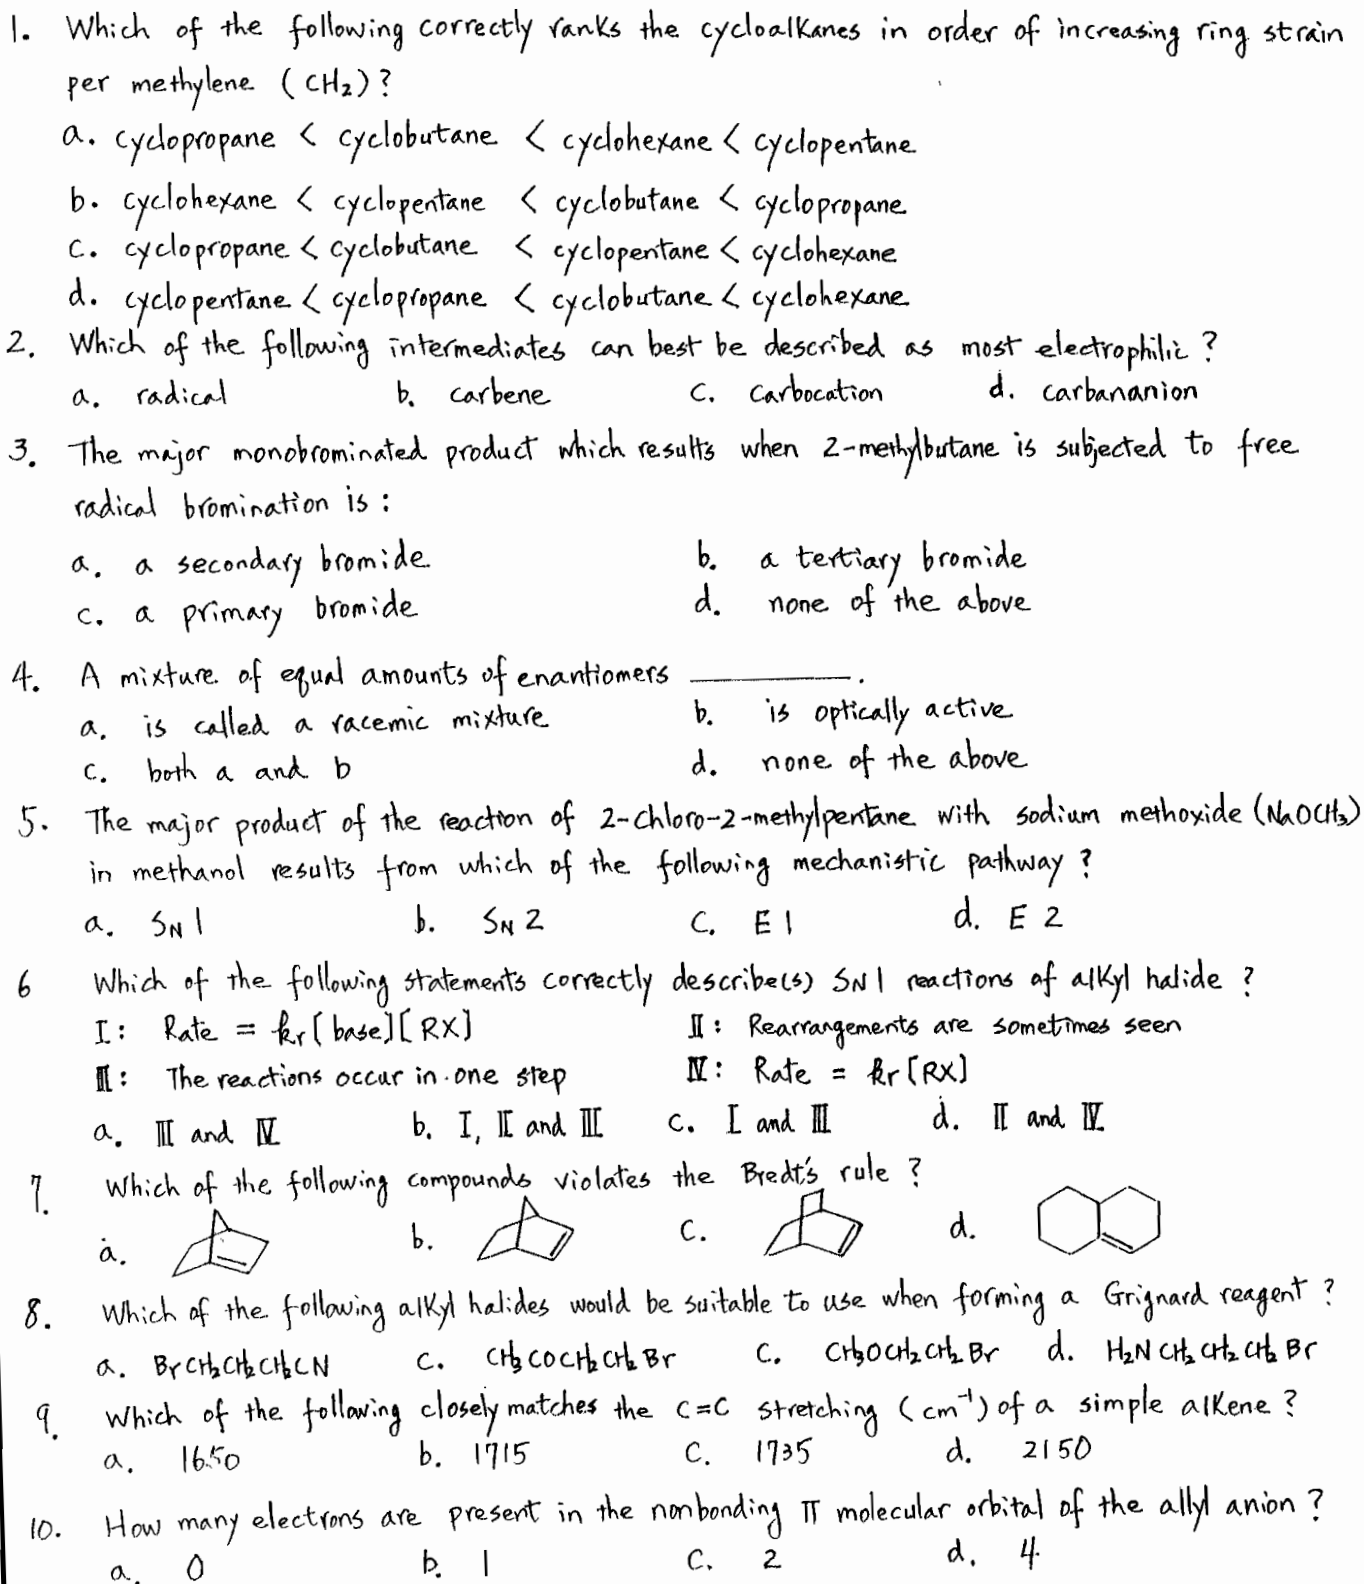 1. Which of the following correctly ranks the cycloalkanes in order of increasing ring strain
per methylene (CH₂)?
a. cyclopropane < cyclobutane < cyclohexane < cyclopentane
b. cyclohexane < cyclopentane < cyclobutane < cyclopropane
c. cyclopropane < cyclobutane < cyclopentane < cyclohexane
d. cyclopentane < cyclopropane < cyclobutane < cyclohexane
2. Which of the following intermediates can best be described as most electrophilic?
a. radical b. carbene c. carbocation d. carbananion
3. The major monobrominated product which results when 2-methylbutane is subjected to free
radical bromination is:
a. a secondary bromide b. a tertiary bromide
c. a primary bromide d. none of the above
4. A mixture of equal amounts of enantiomers ________.
a. is called a racemic mixture b. is optically active
c. both a and b d. none of the above
5. The major product of the reaction of 2-chloro-2-methylpentane with sodium methoxide (NaOCH₃)
in methanol results from which of the following mechanistic pathway?
a. SN1 b. SN2 c. E1 d. E2
6 Which of the following statements correctly describe(s) SN1 reactions of alkyl halide?
I: Rate = kr[base][RX] II: Rearrangements are sometimes seen
III: The reactions occur in one step IV: Rate = kr[RX]
a. III and IV b. I, II and III c. I and III d. II and IV
7. Which of the following compounds violates the Bredt's rule?
a. b. c. d.
8. Which of the following alkyl halides would be suitable to use when forming a Grignard reagent?
a. BrCH₂CH₂CH₂CN c. CH₃COCH₂CH₂Br c. CH₃OCH₂CH₂Br d. H₂NCH₂CH₂CH₂Br
9. Which of the following closely matches the C=C stretching (cm⁻¹) of a simple alkene?
a. 1650 b. 1715 c. 1735 d. 2150
10. How many electrons are present in the nonbonding π molecular orbital of the allyl anion?
a. 0 b. 1 c. 2 d. 4